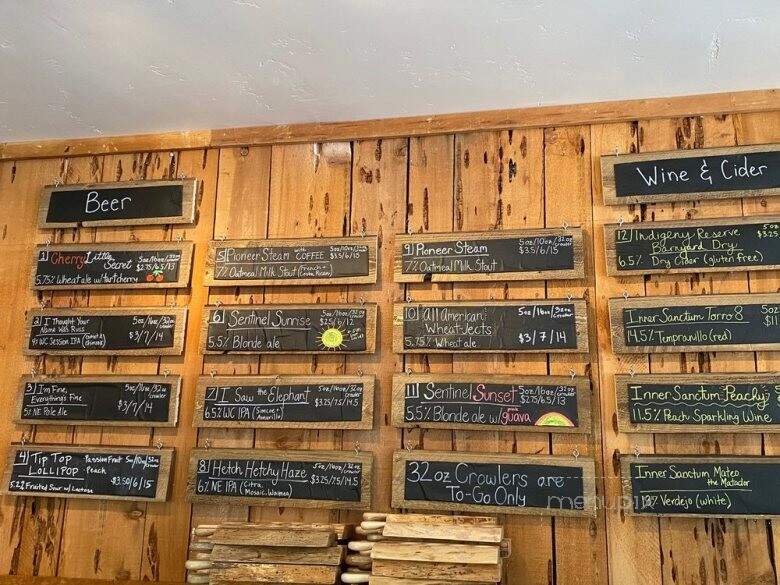 Beer
1 Cherry Little Secret 5oz/16oz/32oz Crowler
5.75% Wheat ale w/ tart cherry $2.75/6.5/13
2 I Thought Your Name Was Russ 5oz/16oz/32oz
WC Session IPA $3/7/14
3 I'm Fine, Everything's Fine 5oz/16oz/32oz
NE Pale Ale $3/7/14
4 Tip Top Lollipop Passion Fruit Peach
5.2% Fruited Sour w/ Lactose $3.50/6/15
5 Pioneer Steam with COFFEE 5oz/10oz/32oz
7% Oatmeal Milk Stout $3.5/6/15
6 Sentinel Sunrise 5oz/16oz/32oz
5.5% Blonde ale $2.5/6/12
7 I Saw the Elephant 5oz/16oz/32oz
6.5% WC IPA $3.25/7.5/14.5
8 Hetch Hetchy Haze 5oz/16oz/32oz
6% NE IPA (Citra, Mosaic, Waimea) $3.25/7.5/14.5
9 Pioneer Steam 5oz/10oz/32oz
7% Oatmeal Milk Stout $3.5/6/15
10 All American Wheat-Jects 5oz/16oz/32oz
5.75% Wheat ale $3/7/14
11 Sentinel Sunset 5oz/16oz/32oz
5.5% Blonde ale w/ pink guava $2.75/6.5/13
32 oz Crowlers are
To-Go Only
Wine & Cider
12 Indigeny Reserve 5oz
Barnyard Dry $3.25
6.5% Dry Cider (gluten free)
Inner Sanctum Torro 8 5oz
14.5% Tempranillo (red) $11
Inner Sanctum Peachy
11.5% Peach Sparkling Wine
Inner Sanctum Mateo
the Matador
13% Verdejo (white)
menupix